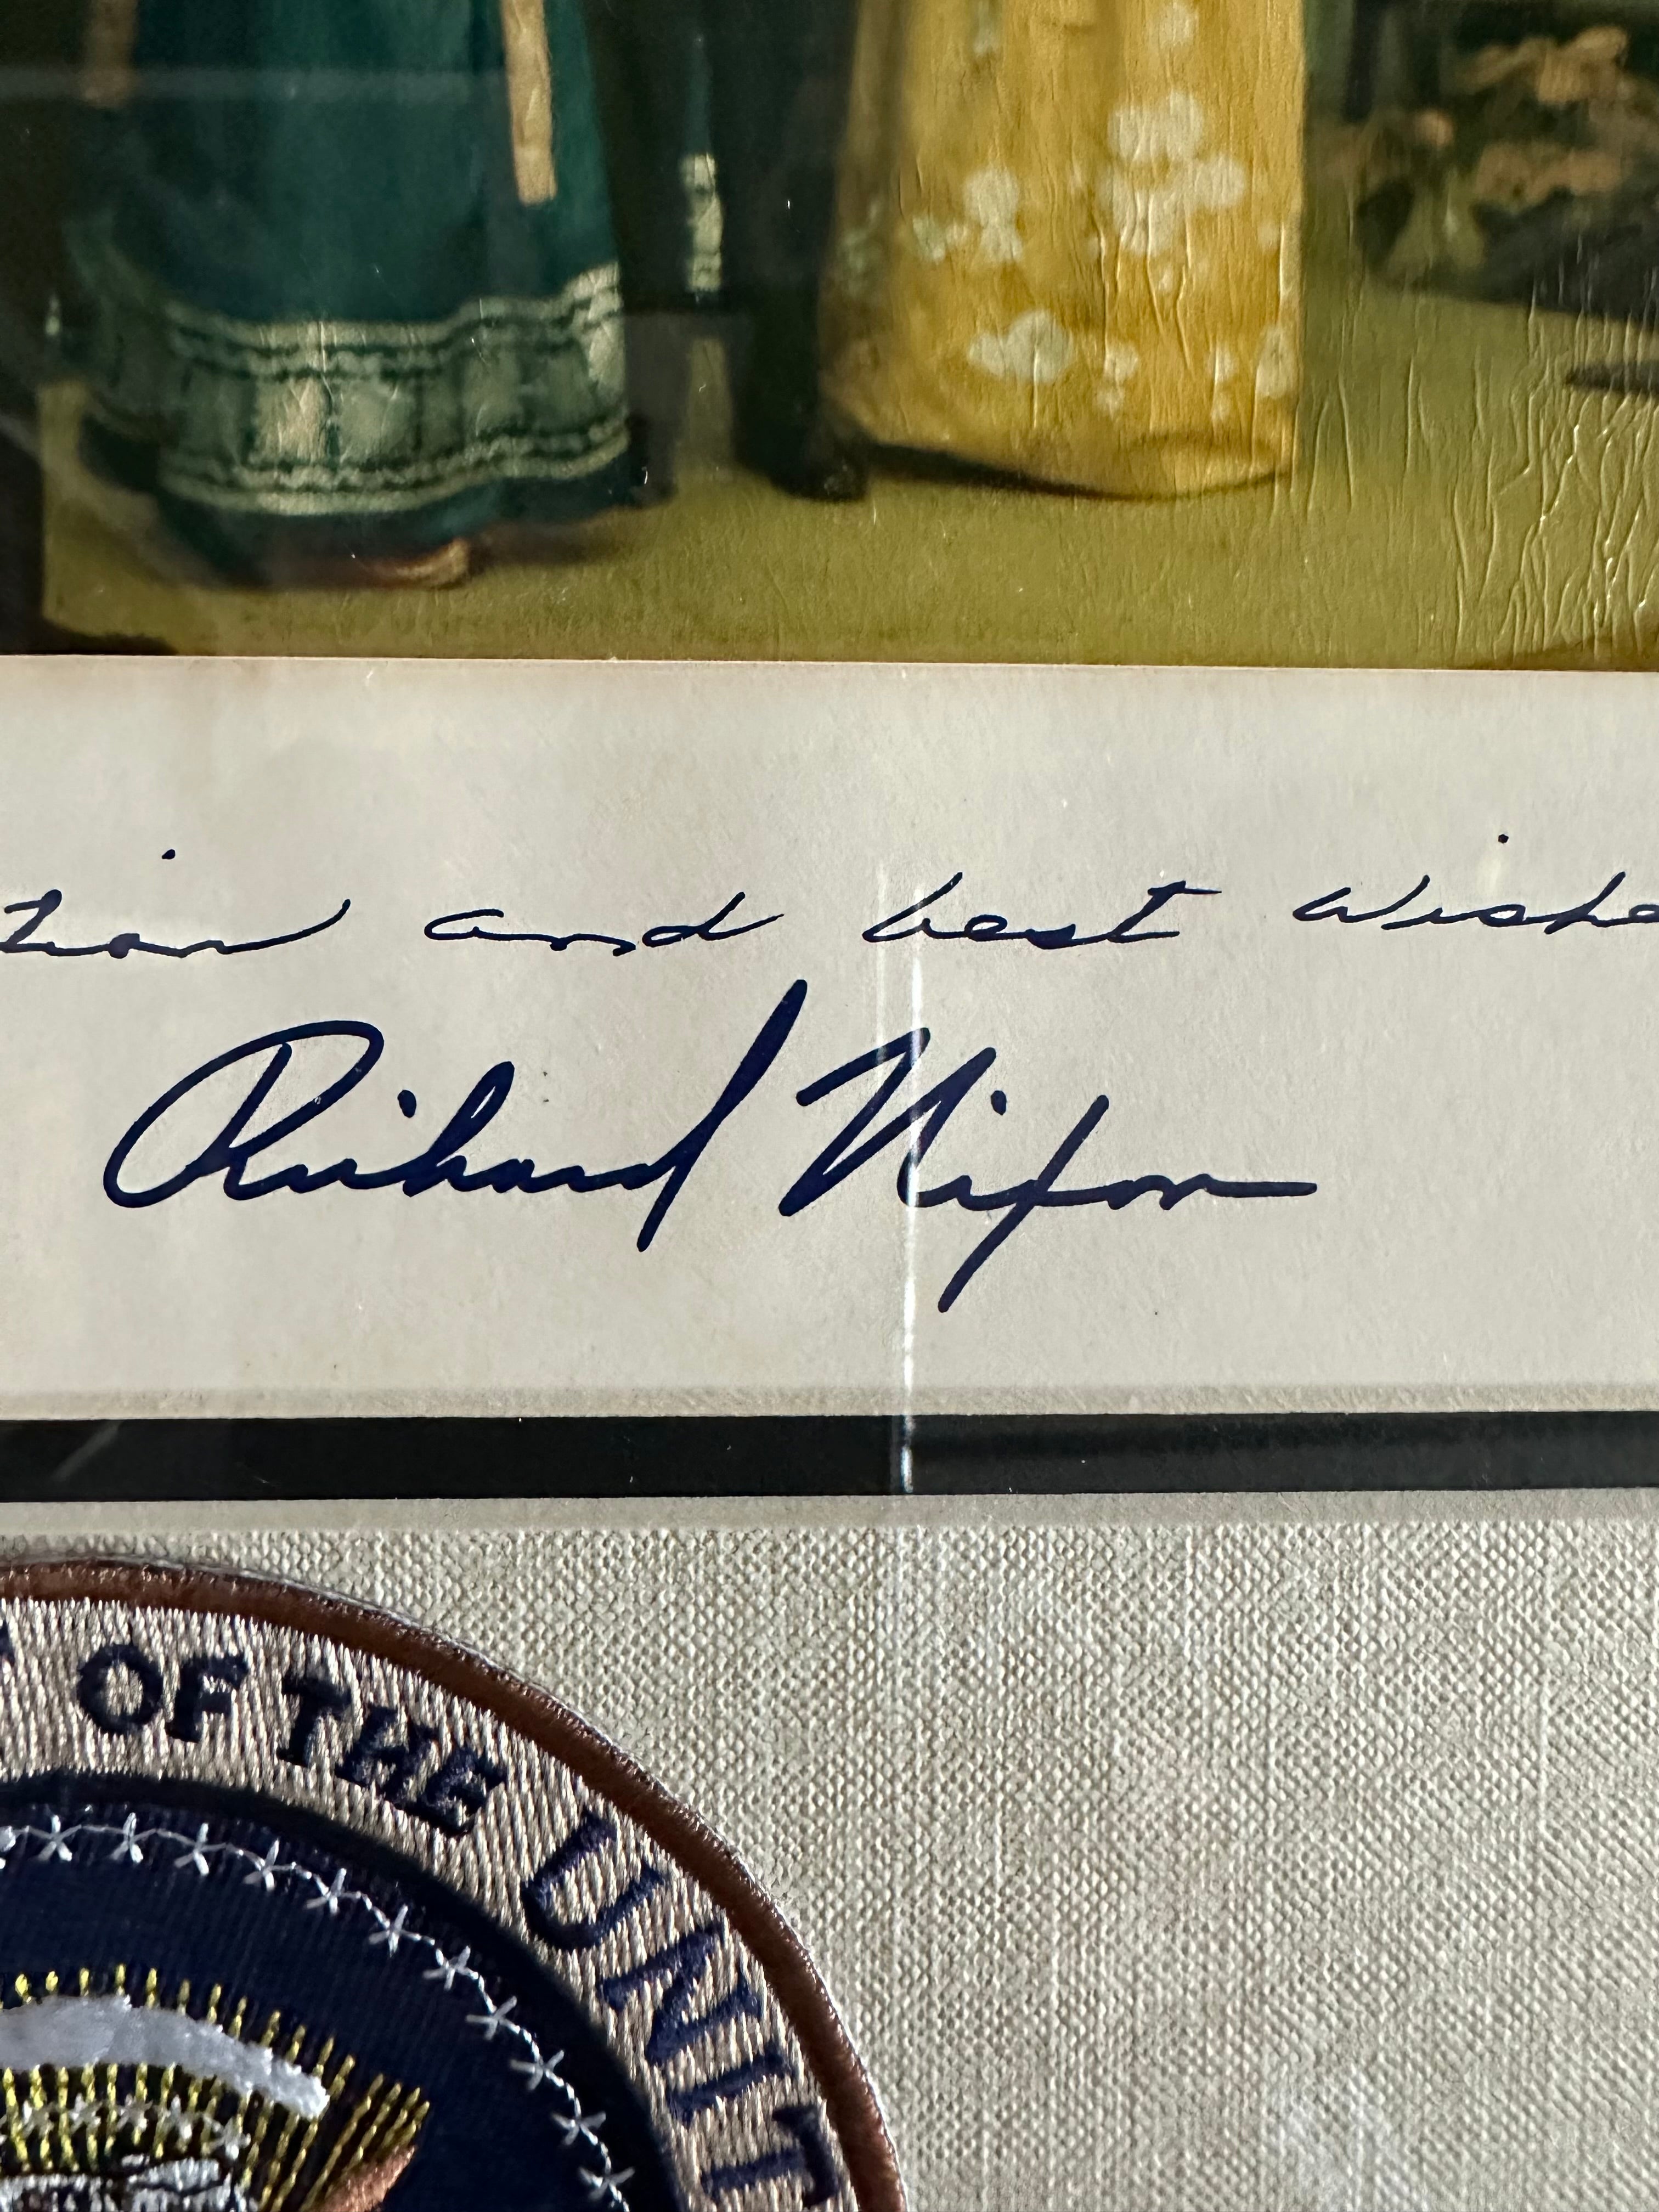 tion and best wishe
Richard Nixon
OF THE UNIT